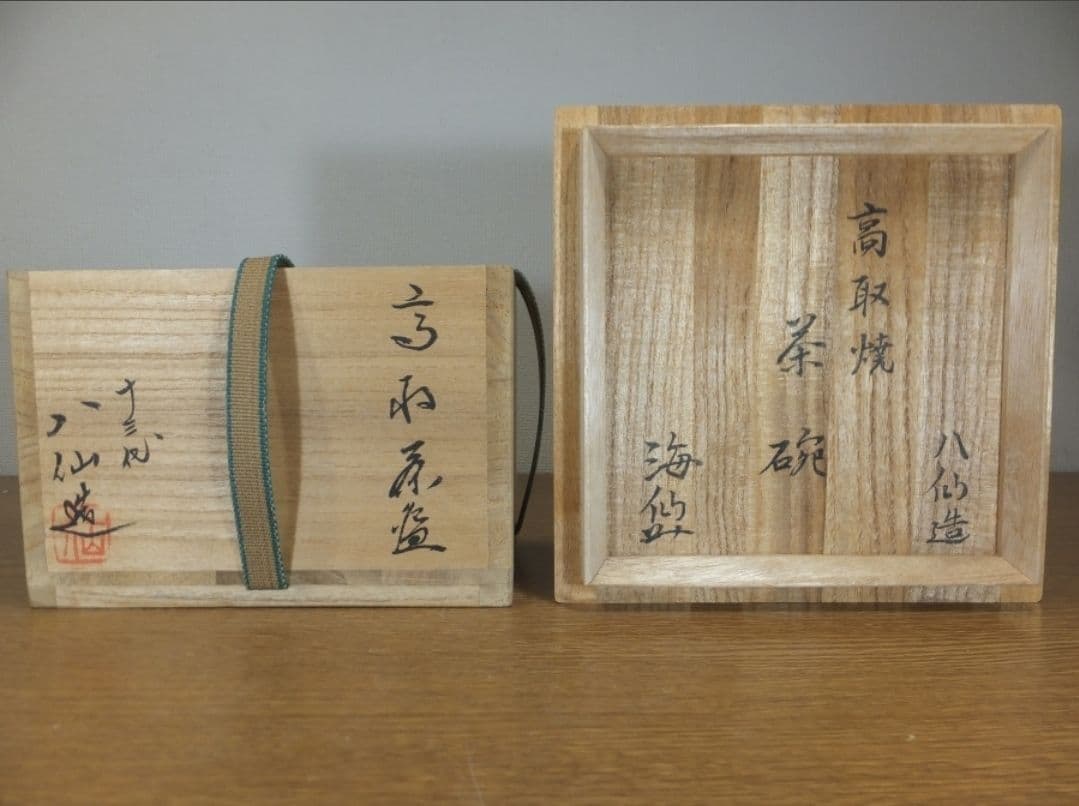 高取茶盌
十三代
八仙造
八仙造
高取焼
茶碗
海仙